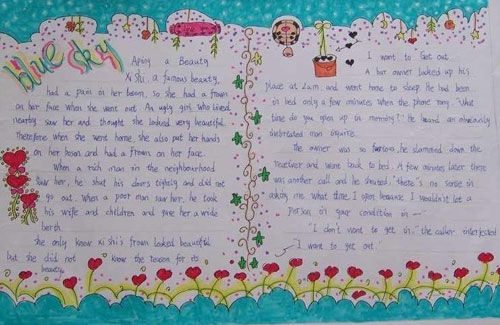 blue sky
Aping a Beauty
Xi shi, a famous beauty,
had a pain in her bosom, so she had a frown
on her face when she went out. An ugly girl who lived
nearby saw her and thought she looked very beautiful.
Therefore when she went home, she also put her hands
on her bosom and had a frown on her face.
When a rich man in the neighbourhood
saw her, he shut his doors tightly and did not
go out. when a poor man saw her, he took
his wife and children and gave her a wide
berth.
She only know xi shi's frown looked beautiful
but she did not know the reason for its
beauty.
I want to Get out
A bar owner locked up his
place at 2am and went home to sleep. He had been
in bed only a few minutes when the phone rang. "What
time do you open up in morning?" He heard an obviously
inebriated man inquire.
The owner was so furious, he slammed down the
receiver and went back to bed. A few minutes later there
was another call and he shouted, "there's no sense in
asking me what time I open because I wouldn't let a
person in your condition in —"
"I don't want to get in." the caller interjected
"I want to get out."